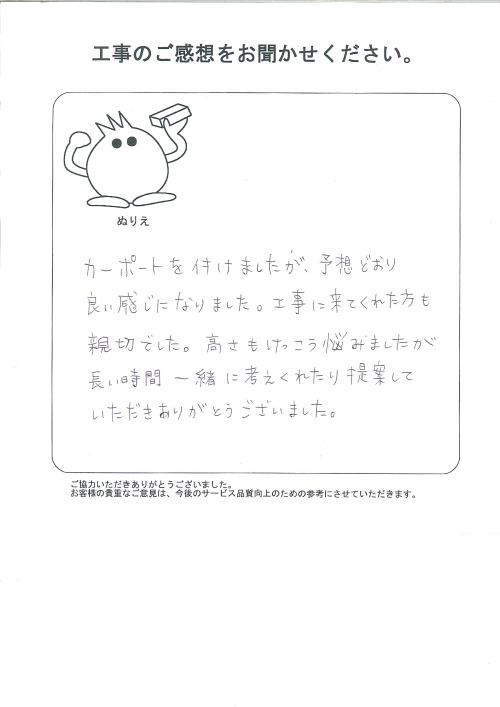 工事のご感想をお聞かせください。
ぬりえ
カーポートを付けましたが、予想どおり
良い感じになりました。工事に来てくれた方も
親切でした。高さもけっこう悩みましたが
長い時間一緒に考えくれたり提案して
いただきありがとうございました。
ご協力いただきありがとうございました。
お客様の貴重なご意見は、今後のサービス品質向上のための参考にさせていただきます。